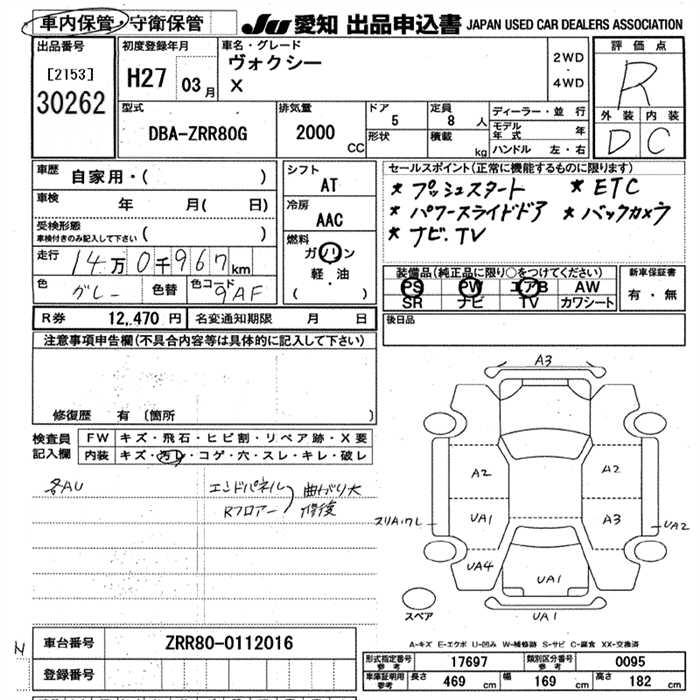 車内保管・守衛保管
JU 愛知 出品申込書 JAPAN USED CAR DEALERS ASSOCIATION
出品番号
[2153]
30262
初度登録年月
H27 03月
車名・グレード
ヴォクシー
X
2WD
・
4WD
評価点
R
外装 内装
D C
型式
DBA-ZRR80G
排気量
2000 CC
ドア
5
形状
定員
8 人
積載
kg
ディーラー・並行
モデル年式 年
ハンドル 左・右
車歴
自家用・( )
車検
年 月( 日)
受検形態
車検付きのみ記入して下さい
( )
走行
14万0千967km
色
グレー
色替
色コード
9AF
シフト
AT
冷房
AAC
燃料
ガソリン
軽・油
( )
セールスポイント(正常に機能するものに限ります)
* プッシュスタート * ETC
* パワースライドドア * バックカメラ
* ナビ.TV
装備品(純正品に限り○をつけてください)
PS PW エアB AW
SR ナビ TV カワシート
新車保証書
有・無
後日品
R券 12,470 円 名変通知期限 月 日
注意事項申告欄(不具合内容等は具体的に記入して下さい)
修復歴 有 〔箇所 〕
検査員記入欄
FW キズ・飛石・ヒビ割・リペア跡・X要
内装 キズ・汚レ・コゲ・穴・スレ・キレ・破レ
各AU
エンドパネル
Rフロアー
曲がり大
修後
A3
A2
A2
UA1
A3
スリA.ワレ
UA2
UA4
UA1
UA1
スペア
A-キズ E-エクボ U-凹み W-補修跡 S-サビ C-腐食 XX-交換済
N
車台番号 ZRR80-0112016
登録番号
型式指定番号 参考 17697 類別区分番号 参考 0095
車庫証明用参考 長さ 469 cm 幅 169 cm 高さ 182 cm